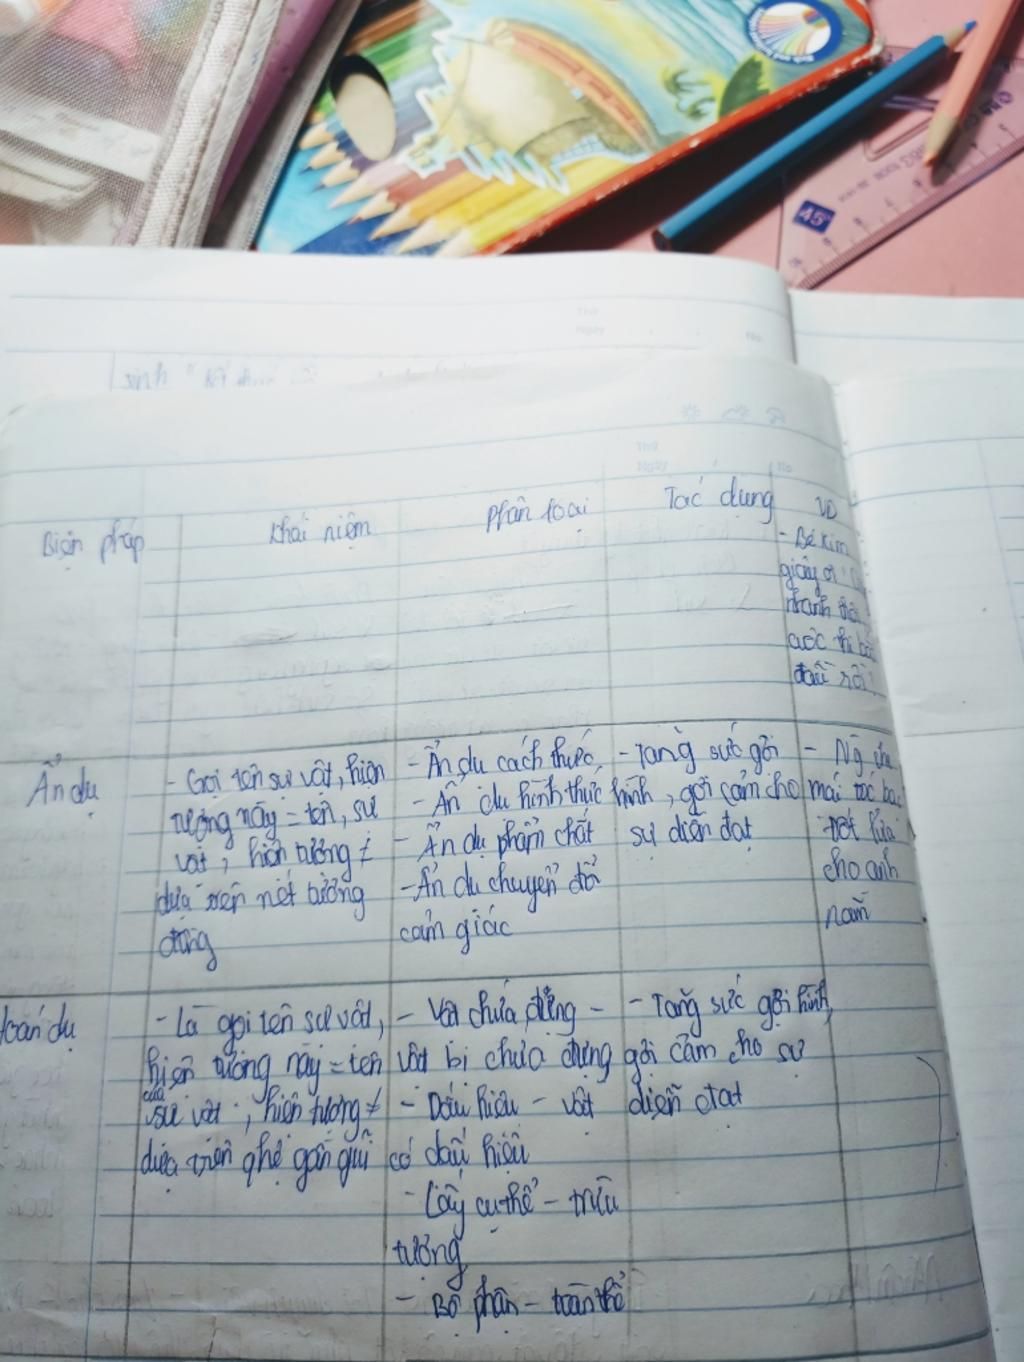 45°
Thứ
Ngày
No.
Thứ
Ngày
No
Biện pháp
Khái niệm
Phân loại
Tác dụng
VD
- Bé kim
giây ơi
nhanh
cuộc thi bắt
đầu rồi
Ẩn dụ
- Gọi tên sự vật, hiện
tượng này = tên, sự
vật, hiện tượng ≠
dựa trên nét tương
đồng
- Ẩn dụ cách thức,
- Ẩn dụ hình thức
- Ẩn dụ phẩm chất
- Ẩn dụ chuyển đổi
cảm giác
- Tăng sức gợi
hình, gợi cảm cho
sự diễn đạt
- Ng cha
mái tóc bạc
Đốt lửa
cho anh
nằm
Hoán dụ
- Là gọi tên sự vật,
hiện tượng này = tên
của
sự vật, hiện tượng ≠
dựa trên qhệ gần gũi
- Vật chứa đựng -
vật bị chứa đựng
- Dấu hiệu - vật
có dấu hiệu
- Lấy cụ thể - trừu
tượng
- Bộ phận - toàn thể
- Tăng sức gợi hình,
gợi cảm cho sự
diễn đạt